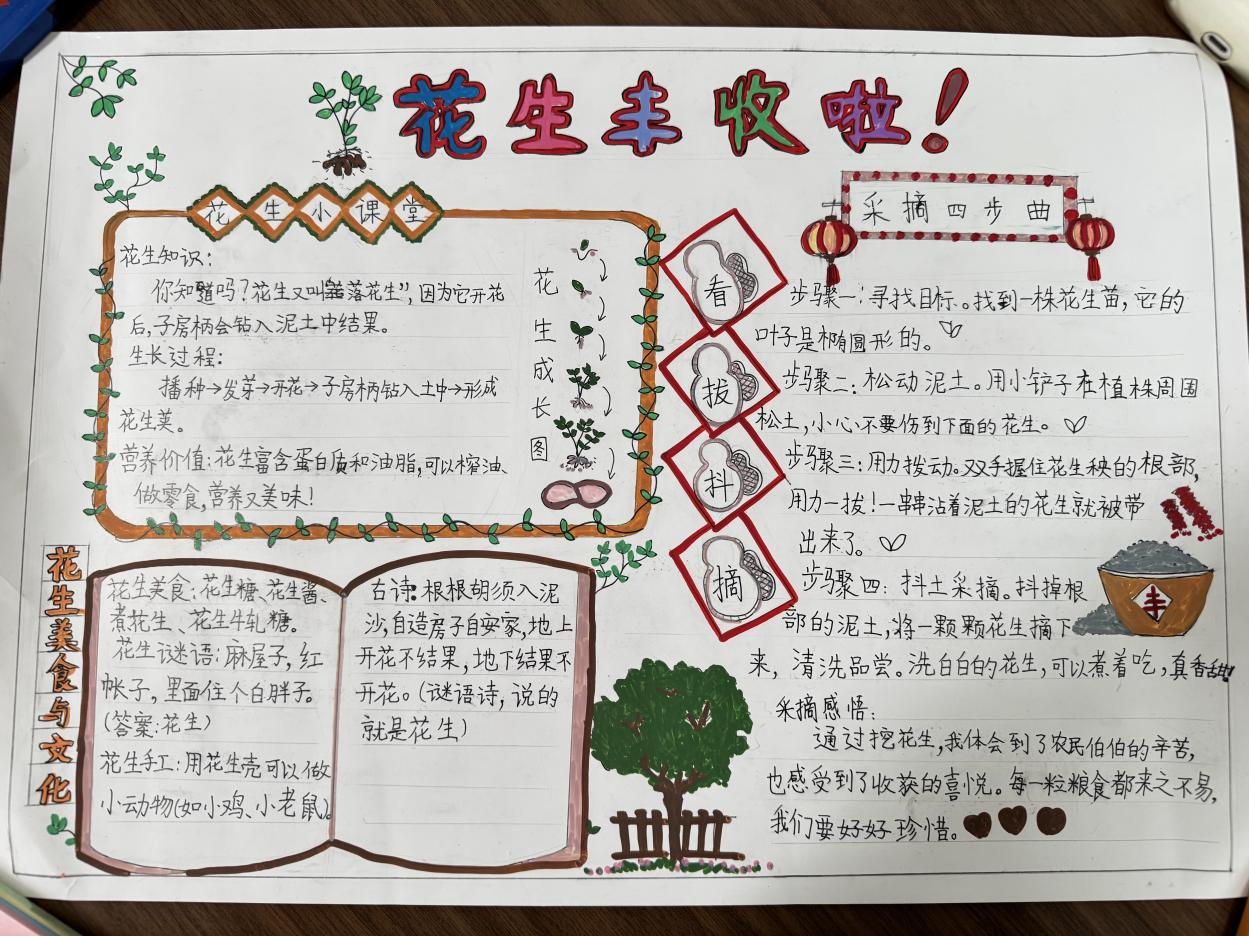 花生丰收啦！
花生小课堂
花生知识：
你知道吗？花生又叫“落花生”，因为它开花
后，子房柄会钻入泥土中结果。
生长过程：
播种→发芽→开花→子房柄钻入土中→形成
花生荚。
营养价值：花生富含蛋白质和油脂，可以榨油、
做零食，营养又美味！
花生成长图
采摘四步曲
看
拔
抖
摘
步骤一：寻找目标。找到一株花生苗，它的
叶子是椭圆形的。
步骤二：松动泥土。用小铲子在植株周围
松土，小心不要伤到下面的花生。
步骤三：用力拨动。双手握住花生秧的根部，
用力一拔！一串串沾着泥土的花生就被带
出来了。
步骤四：抖土采摘。抖掉根
部的泥土，将一颗颗花生摘下
来，清洗品尝。洗白白的花生，可以煮着吃，真香甜！
丰
采摘感悟：
通过挖花生，我体会到了农民伯伯的辛苦，
也感受到了收获的喜悦。每一粒粮食都来之不易，
我们要好好珍惜。
花生美食与文化
花生美食：花生糖、花生酱、
煮花生、花生牛轧糖。
花生谜语：麻屋子，红
帐子，里面住个白胖子。
（答案：花生）
花生手工：用花生壳可以做
小动物（如小鸡、小老鼠）。
古诗：根根胡须入泥
沙，自造房子自安家，地上
开花不结果，地下结果不
开花。（谜语诗，说的
就是花生）